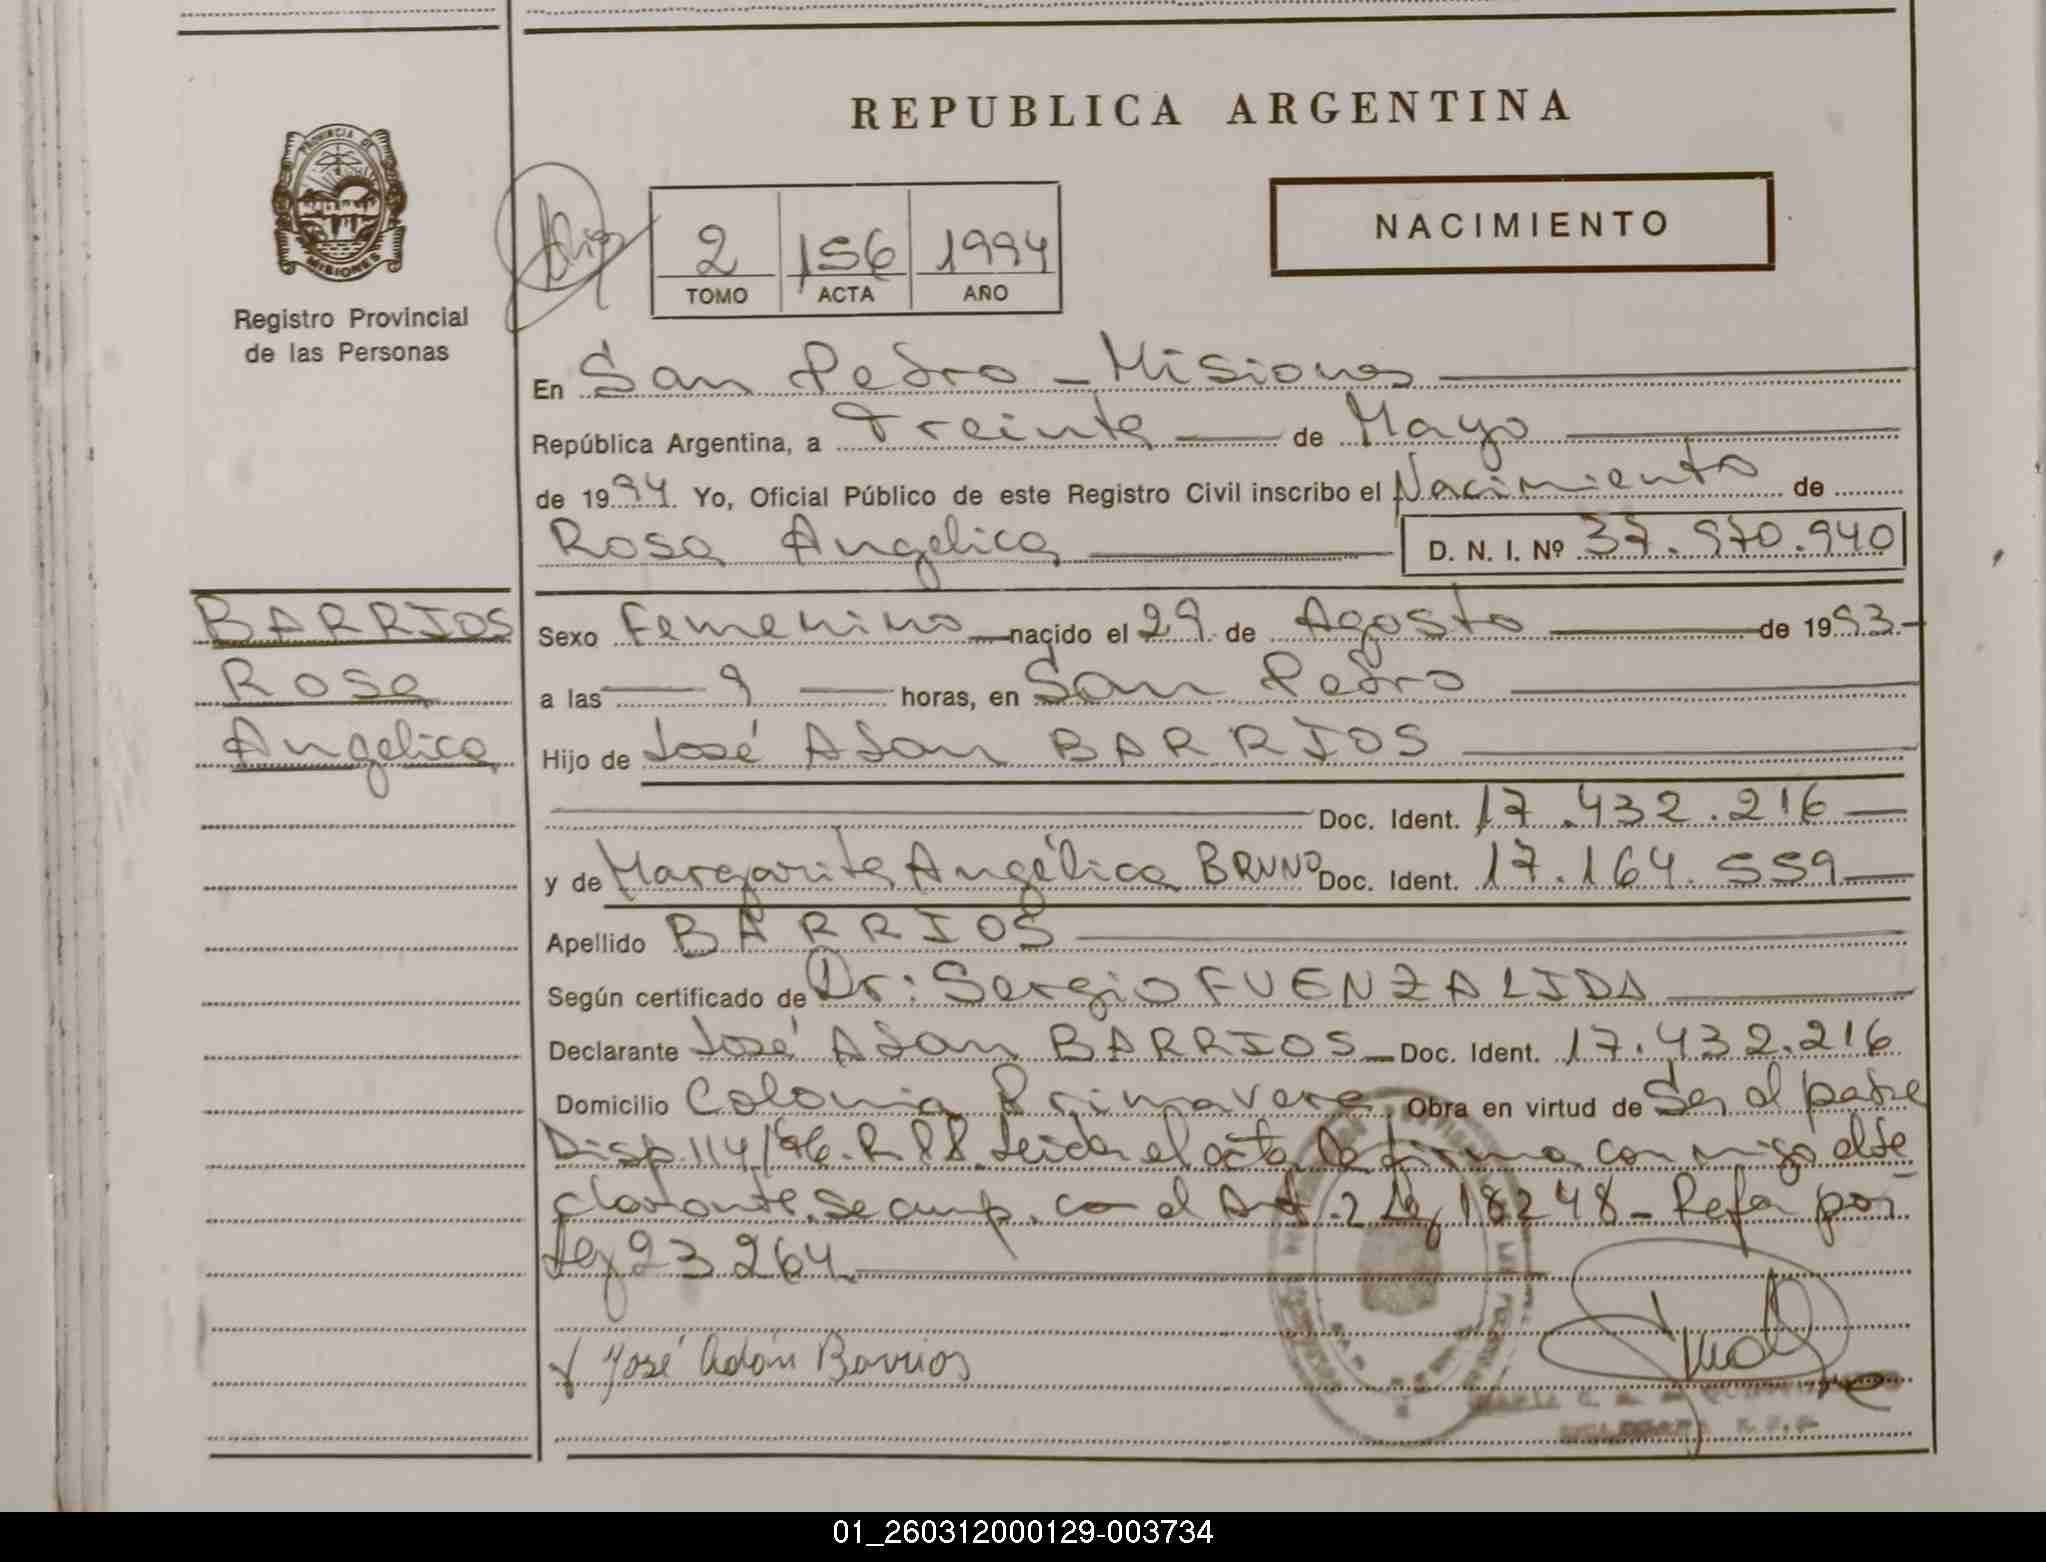 REPUBLICA ARGENTINA
PROVINCIA DE
MISIONES
Registro Provincial
de las Personas
2 156 1994
TOMO ACTA AÑO
NACIMIENTO
En San Pedro - Misiones
República Argentina, a Treinta de Mayo
de 1994. Yo, Oficial Público de este Registro Civil inscribo el Nacimiento de
Rosa Angelica D. N. I. Nº 37.970.940
BARRIOS
Rosa
Angelica
Sexo Femenino nacido el 29 de Agosto de 1993.-
a las 9 horas, en San Pedro
Hijo de José Adan BARRIOS
Doc. Ident. 17.432.216
y de Margarita Angélica BRUNO Doc. Ident. 17.164.559
Apellido BARRIOS
Según certificado de Dr: Sergio FUENZALIDA
Declarante José Adan BARRIOS Doc. Ident. 17.432.216
Domicilio Colonia Primavera Obra en virtud de Ser el padre
Disp. 114/96. R.P.P. Leida el acta la firma conmigo el de
clarante. Se cump. con el Art. 2 Ley 18248 - Refor por
Ley 23264.
José Adán Barrios
01_260312000129-003734